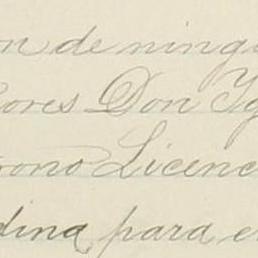 on de ningu
ores Don Ig
rono Licenc
dina para e